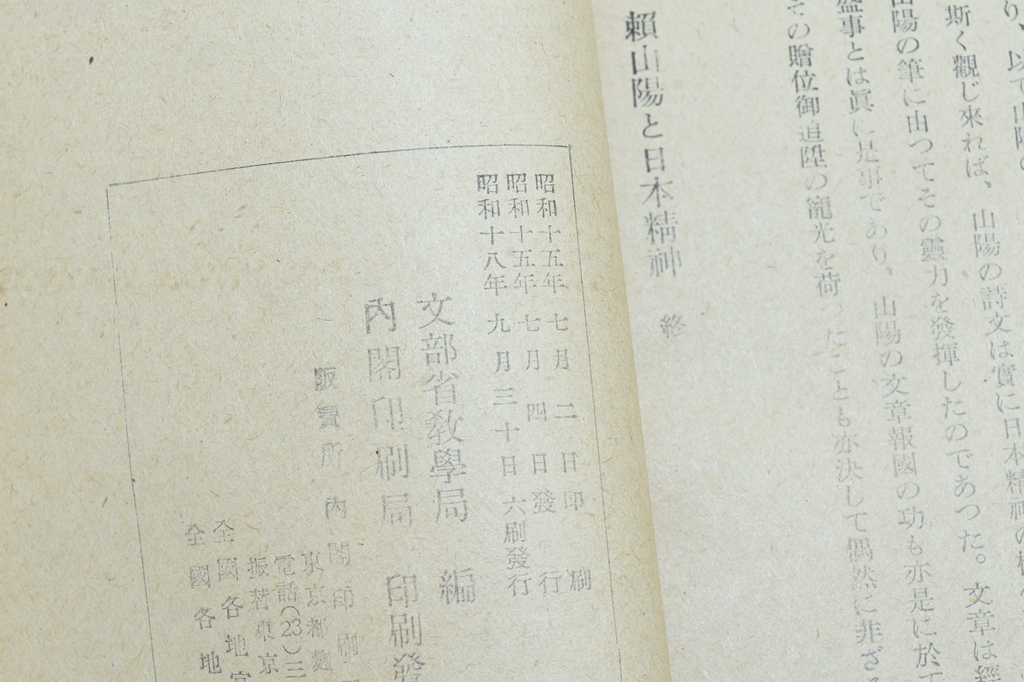 り、以て山陽の
斯く觀じ來れば、山陽の詩文は實に日本精神の
山陽の筆に由つてその靈力を發揮したのであつた。文章は經
盛事とは眞に是事であり、山陽の文章報國の功も亦是に於て
その贈位御追陞の寵光を荷つたことも亦決して偶然に非ざ
賴山陽と日本精神 終
昭和十五年七月二日印刷
昭和十五年七月四日發行
昭和十八年九月三十日六刷發行
文部省教學局 編
內閣印刷局 印刷發
販賣所 內閣印刷
東京都麴
電話(23)三
振替東京
全國各地官
全國各地